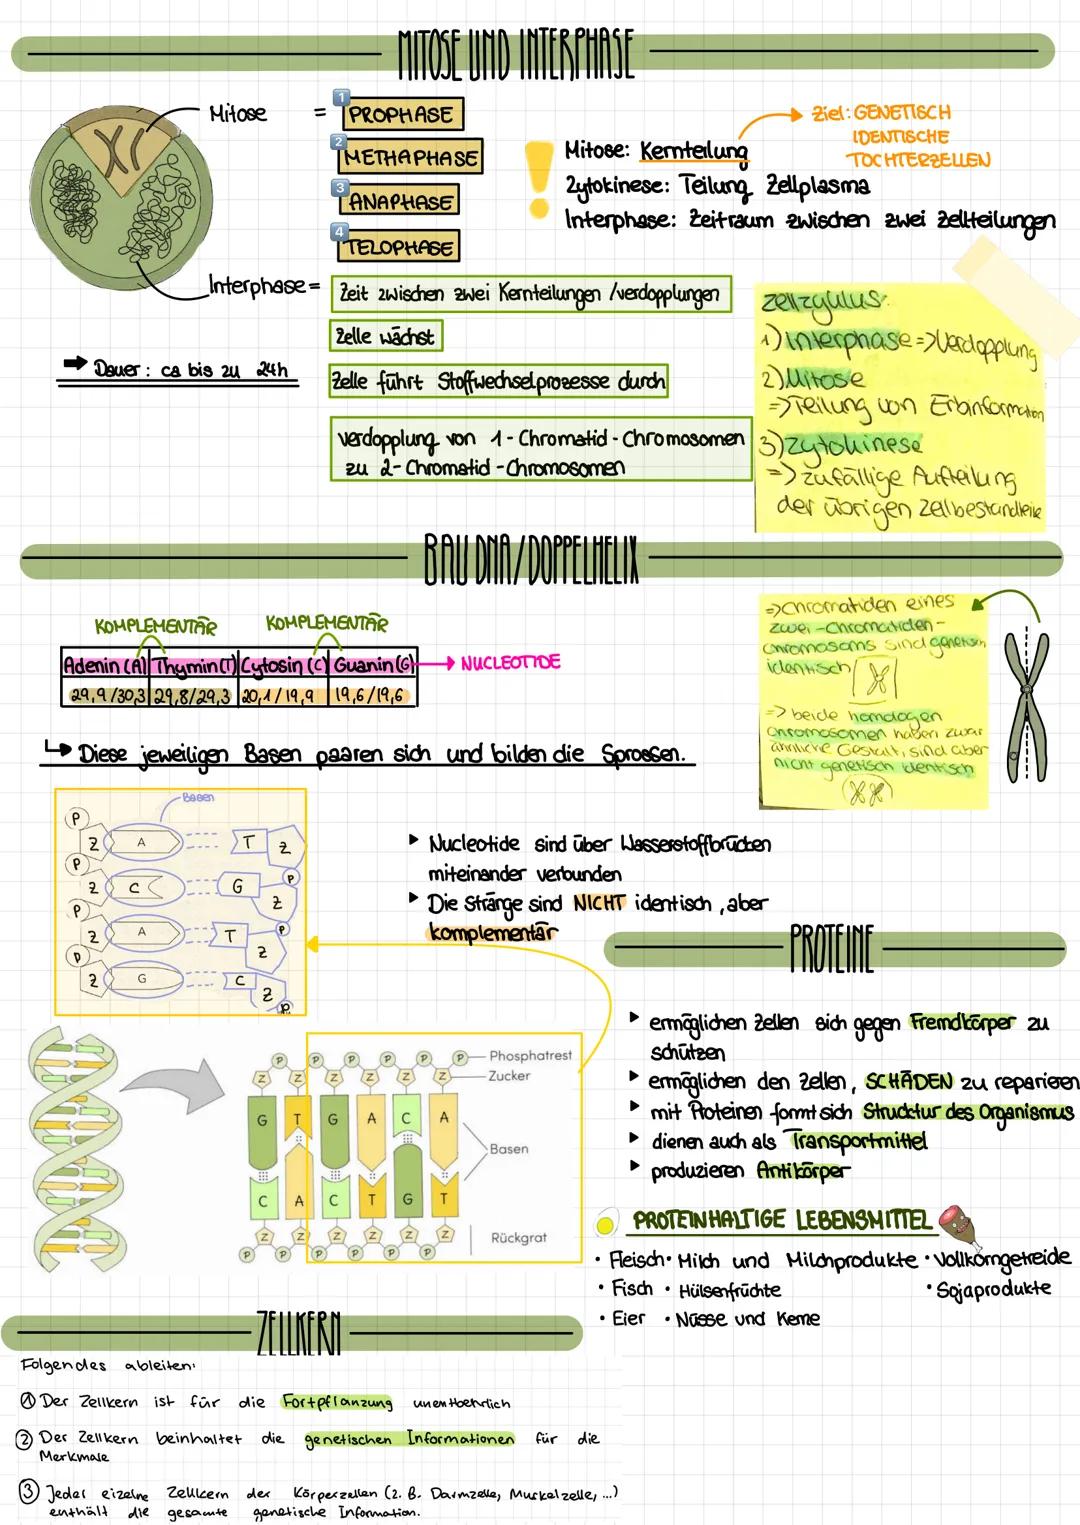 MITOSE UND INTERPHASE
Mitose =
1 PROPHASE
2 METHAPHASE
3 ANAPHASE
4 TELOPHASE
Ziel: GENETISCH
IDENTISCHE
TOCHTERZELLEN
Mitose: Kernteilung
Zytokinese: Teilung Zellplasma
Interphase: Zeitraum zwischen zwei Zellteilungen
Interphase =
Zeit zwischen zwei Kernteilungen /verdopplungen
Zelle wächst
Zelle führt Stoffwechselprozesse durch
Verdopplung von 1-Chromatid-Chromosomen
zu 2-Chromatid-Chromosomen
➡ Dauer: ca bis zu 24h
Zellzyklus:
1) Interphase => Verdopplung
2) Mitose
=> Teilung von Erbinformation
3) Zytokinese
=> zufällige Aufteilung
der übrigen Zellbestandteile
BAU DNA/DOPPELHELIX
KOMPLEMENTÄR KOMPLEMENTÄR
Adenin (A) Thymin (T) Cytosin (C) Guanin (G) → NUCLEOTIDE
29,9/30,3 29,8/29,3 20,1/19,9 19,6/19,6
↳ Diese jeweiligen Basen paaren sich und bilden die Sprossen.
=> Chromatiden eines
zwei-Chromatiden-
Chromosoms sind genetisch
identisch
=> beide homologen
Chromosomen haben zwar
ähnliche Gestalt, sind aber
nicht genetisch identisch
Basen
P
Z A T Z
P
Z C G P
P Z
Z A T P
P Z
Z G C Z
P
▸ Nucleotide sind über Wasserstoffbrücken
miteinander verbunden
▸ Die Stränge sind NICHT identisch, aber
komplementär
P P P P P P Phosphatrest
Z Z Z Z Z Z Zucker
G T G A C A
Basen
C A C T G T
Z Z Z Z Z Z Rückgrat
P P P P P P
PROTEINE
▸ ermöglichen Zellen sich gegen Fremdkörper zu
schützen
▸ ermöglichen den Zellen, SCHÄDEN zu reparieren
▸ mit Proteinen formt sich Strucktur des Organismus
▸ dienen auch als Transportmittel
▸ produzieren Antikörper
PROTEINHALTIGE LEBENSMITTEL
• Fleisch • Milch und Milchprodukte • Vollkorngetreide
• Fisch • Hülsenfrüchte • Sojaprodukte
• Eier • Nüsse und Kerne
ZELLKERN
Folgendes ableiten:
① Der Zellkern ist für die Fortpflanzung unentbehrlich
② Der Zellkern beinhaltet die genetischen Informationen für die
Merkmale
③ Jeder eizelne Zellkern der Körperzellen (z.B. Darmzelle, Muskelzelle, ...)
enthält die gesamte genetische Information.